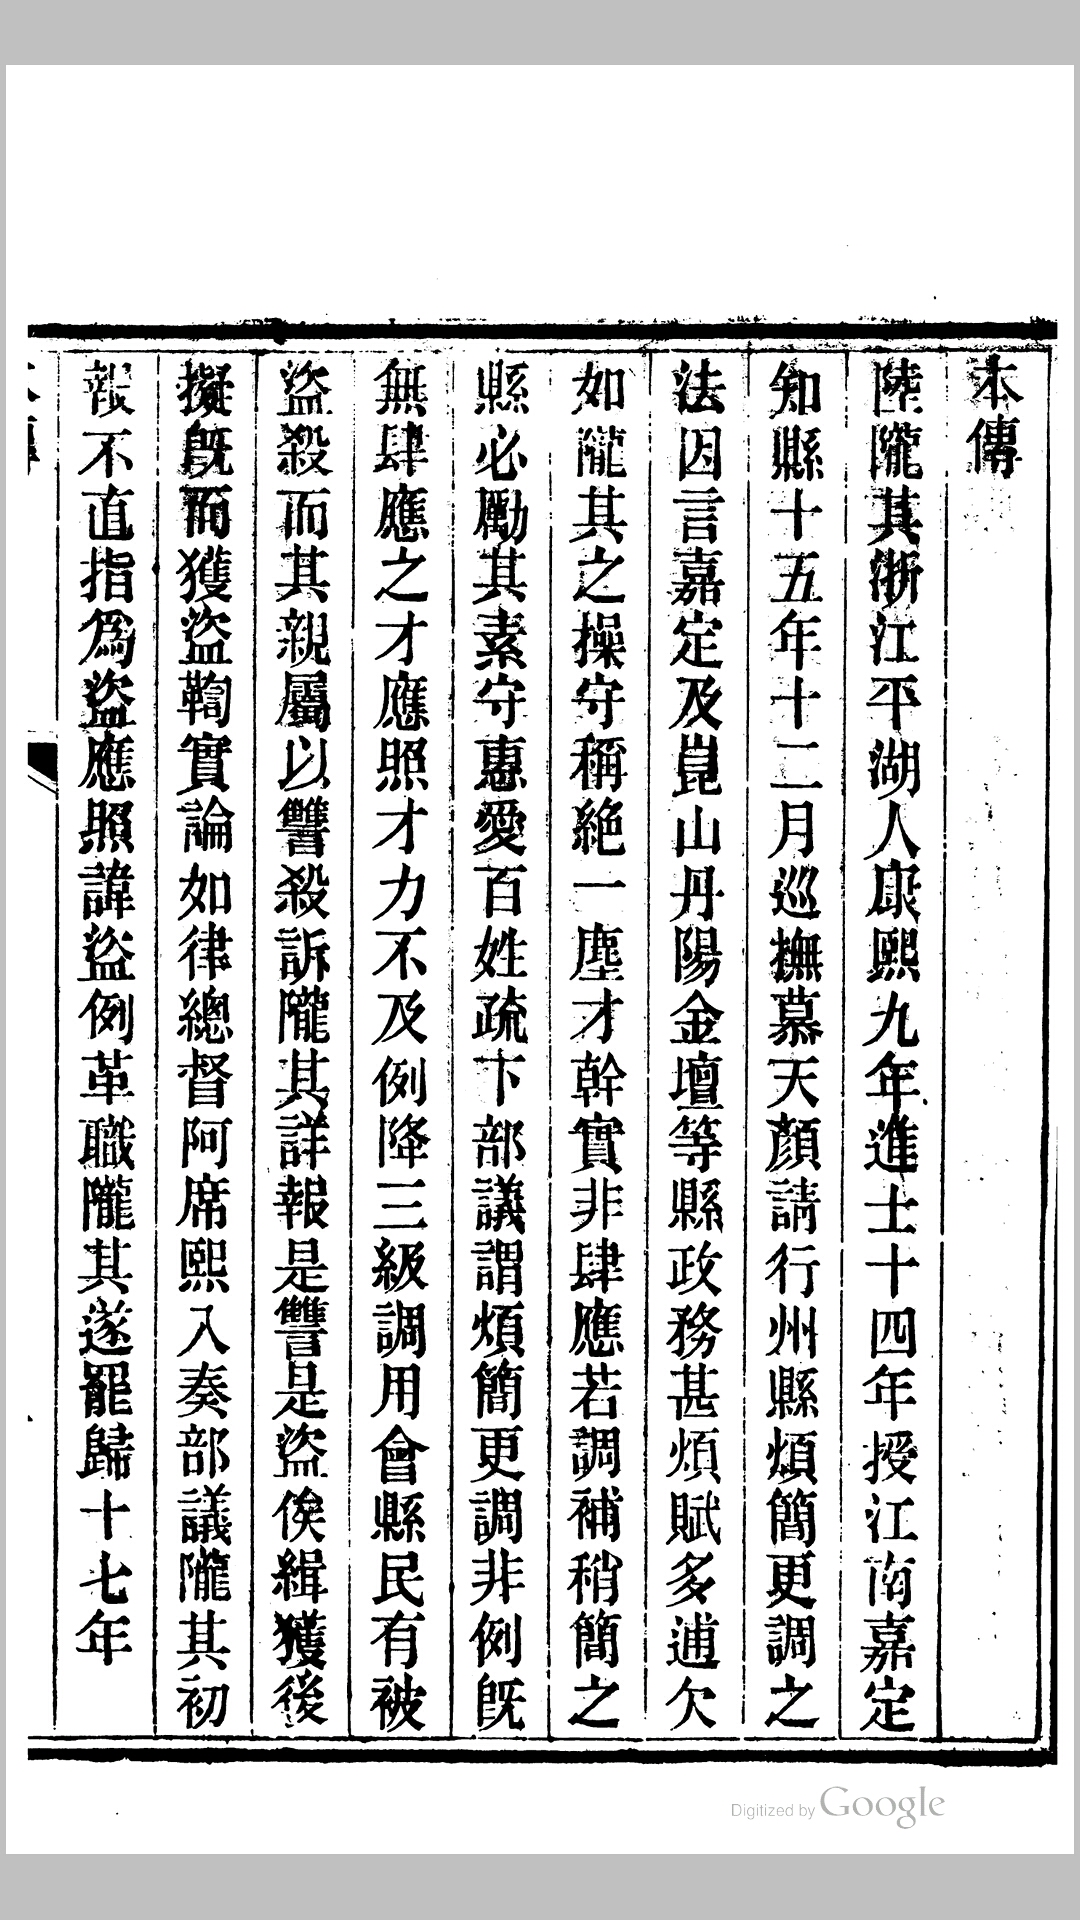 本傳
陸隴其浙江平湖人康熙九年進士十四年授江南嘉定
知縣十五年十二月巡撫慕天顏請行州縣煩簡更調之
法因言嘉定及崑山丹陽金壇等縣政務甚煩賦多逋欠
如隴其之操守稱絶一塵才幹實非肆應若調補稍簡之
縣必勵其素守惠愛百姓疏下部議謂煩簡更調非例既
無肆應之才應照才力不及例降三級調用會縣民有被
盜殺而其親屬以讐殺訴隴其詳報是讐是盜俟緝獲後
擬既而獲盜鞫實論如律總督阿席熙入奏部議隴其初
報不直指爲盜應照諱盜例革職隴其遂罷歸十七年
Digitized by Google